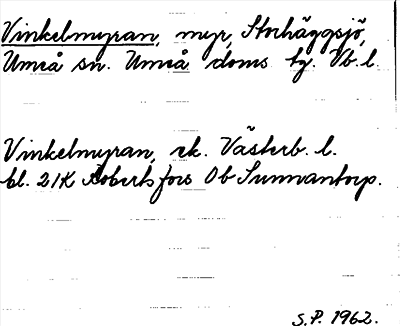 Vinkelmyran, myr, Storhäggsjö,
Umeå sn. Umeå doms. tg. Vb. l.
Vinkelmyran, ek. Västerb. l.
bl. 21K Robertsfors Ob Sunnantorp.
S.P. 1962.